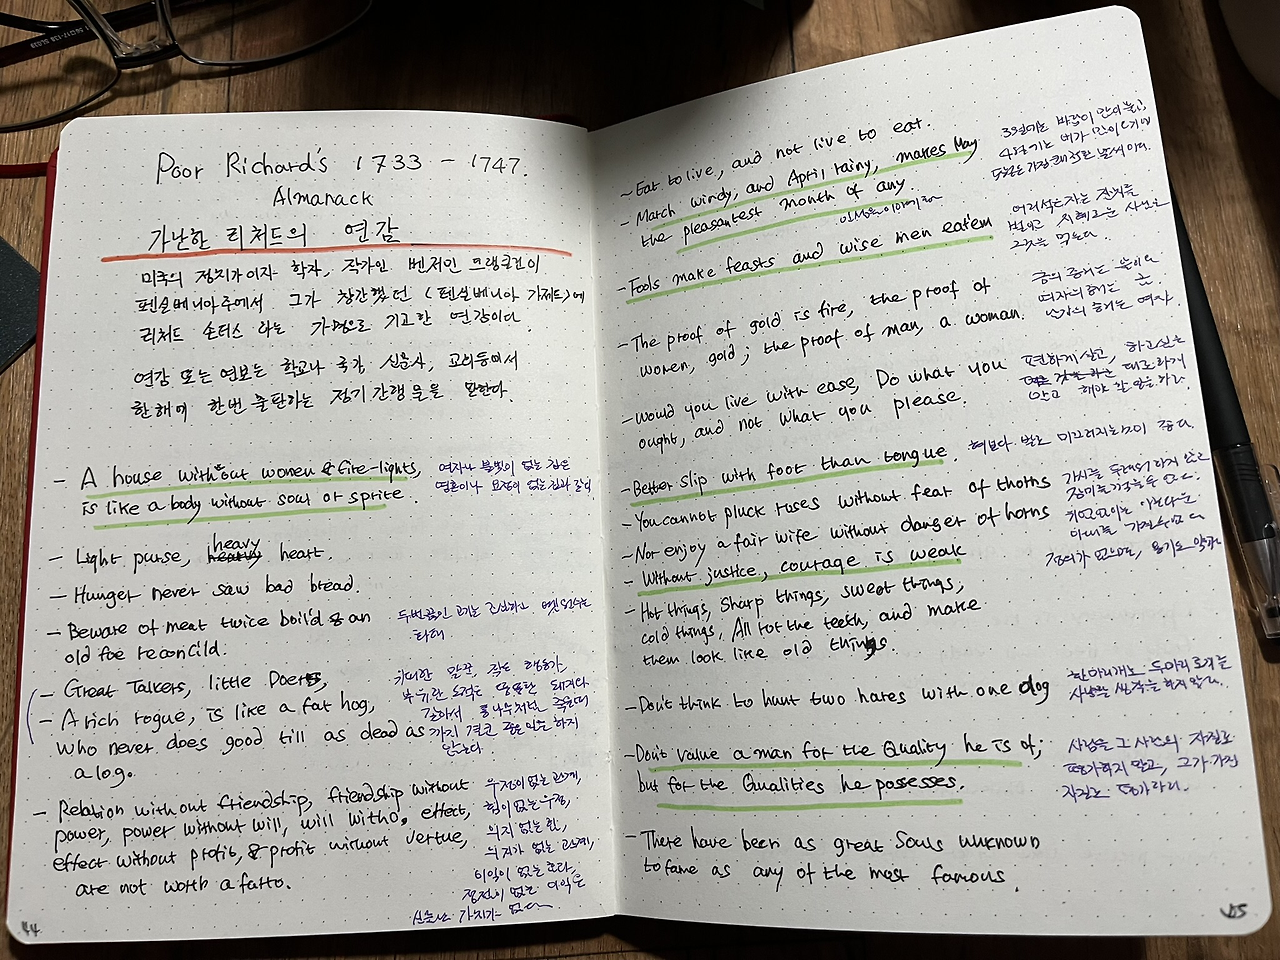 Poor Richard's 1733 - 1747.
Almanack
가난한 리처드의 연감
미국의 정치가이자 학자, 작가인 벤저민 프랭클린이
펜실베니아주에서 그가 창간했던 <펜실베니아 가제트>에
리처드 손더스 라는 가명으로 기고한 연감이다.
연감 또는 연보는 학교나 국가, 신문사, 교회등에서
한해에 한번 출판하는 정기 간행물을 말한다.
- A house without women & fire-lights,
is like a body without soul or sprite.
여자나 불빛이 없는 집은
영혼이나 요정이 없는
- Light purse, heavy heart.
- Hunger never saw bad bread.
- Beware of meat twice boil'd & an
old foe reconcil'd.
두번 끓인 고기는 조심하고 옛 원수는
- Great Talkers, little Doers,
- A rich rogue, is like a fat hog,
who never does good till as dead as
a log.
커다란 말꾼, 작은 행동가
부유한 도적은 뚱뚱한 돼지와
같아서 통나무처럼 죽을때
까지 결코 좋은일을 하지
않는다
- Relation without friendship, friendship without
power, power without will, will witho. effect,
effect without profit, & profit without vertue,
are not worth a farto.
우정이 없는 관계,
힘이 없는 우정,
의지 없는 힘,
의지가 없는 관계,
이익이 없는 효과,
없는 이익은
가치가 없다
44
~ Eat to live, and not live to eat.
- March windy, and April rainy, makes May
the pleasantest month of any.
3월에는 바람이 많이 불고,
4월에는 비가 많이 오기에
5월은 가장 쾌적한 날씨이다.
- Fools make feasts and wise men eat em
어리석은 자는 잔치를
벌이고 지혜로운 사람은
그것을 먹는다.
- The proof of gold is fire, the proof of
women, gold; the proof of man, a woman.
금의 증거는 불이요
여자의 증거는 금
남자의 증거는 여자.
- Would you live with ease, Do what you
ought, and not what you please.
편하게 살고, 하고싶은
대로 하게
말고 해야 할 일을 하라
- Better slip with foot than tongue.
혀보다 발로 미끄러지는것이 좋다.
- You cannot pluck roses without fear of thorns
- Nor enjoy a fair wife without danger of horns
가시를 두려워 하지 않고
장미를 꺾을 수 없다.
위험없이는 아름다운
아내를 가질수 없다
- Without justice, courage is weak
정의가 없으면, 용기도 약하다
- Hot things, Sharp things, sweet things,
cold things, All rot the teeth, and make
them look like old things.
- Don't think to hunt two hares with one dog
한마리개로 두마리 토끼를
사냥할 생각을 하지 말라.
- Don't value a man for the Quality he is of;
but for the Qualities he possesses.
사람을 그 사람의 자질로
평가하지 말고, 그가 가진
자질로 평가하라.
- There have been as great Souls unknown
to fame as any of the most famous.
45